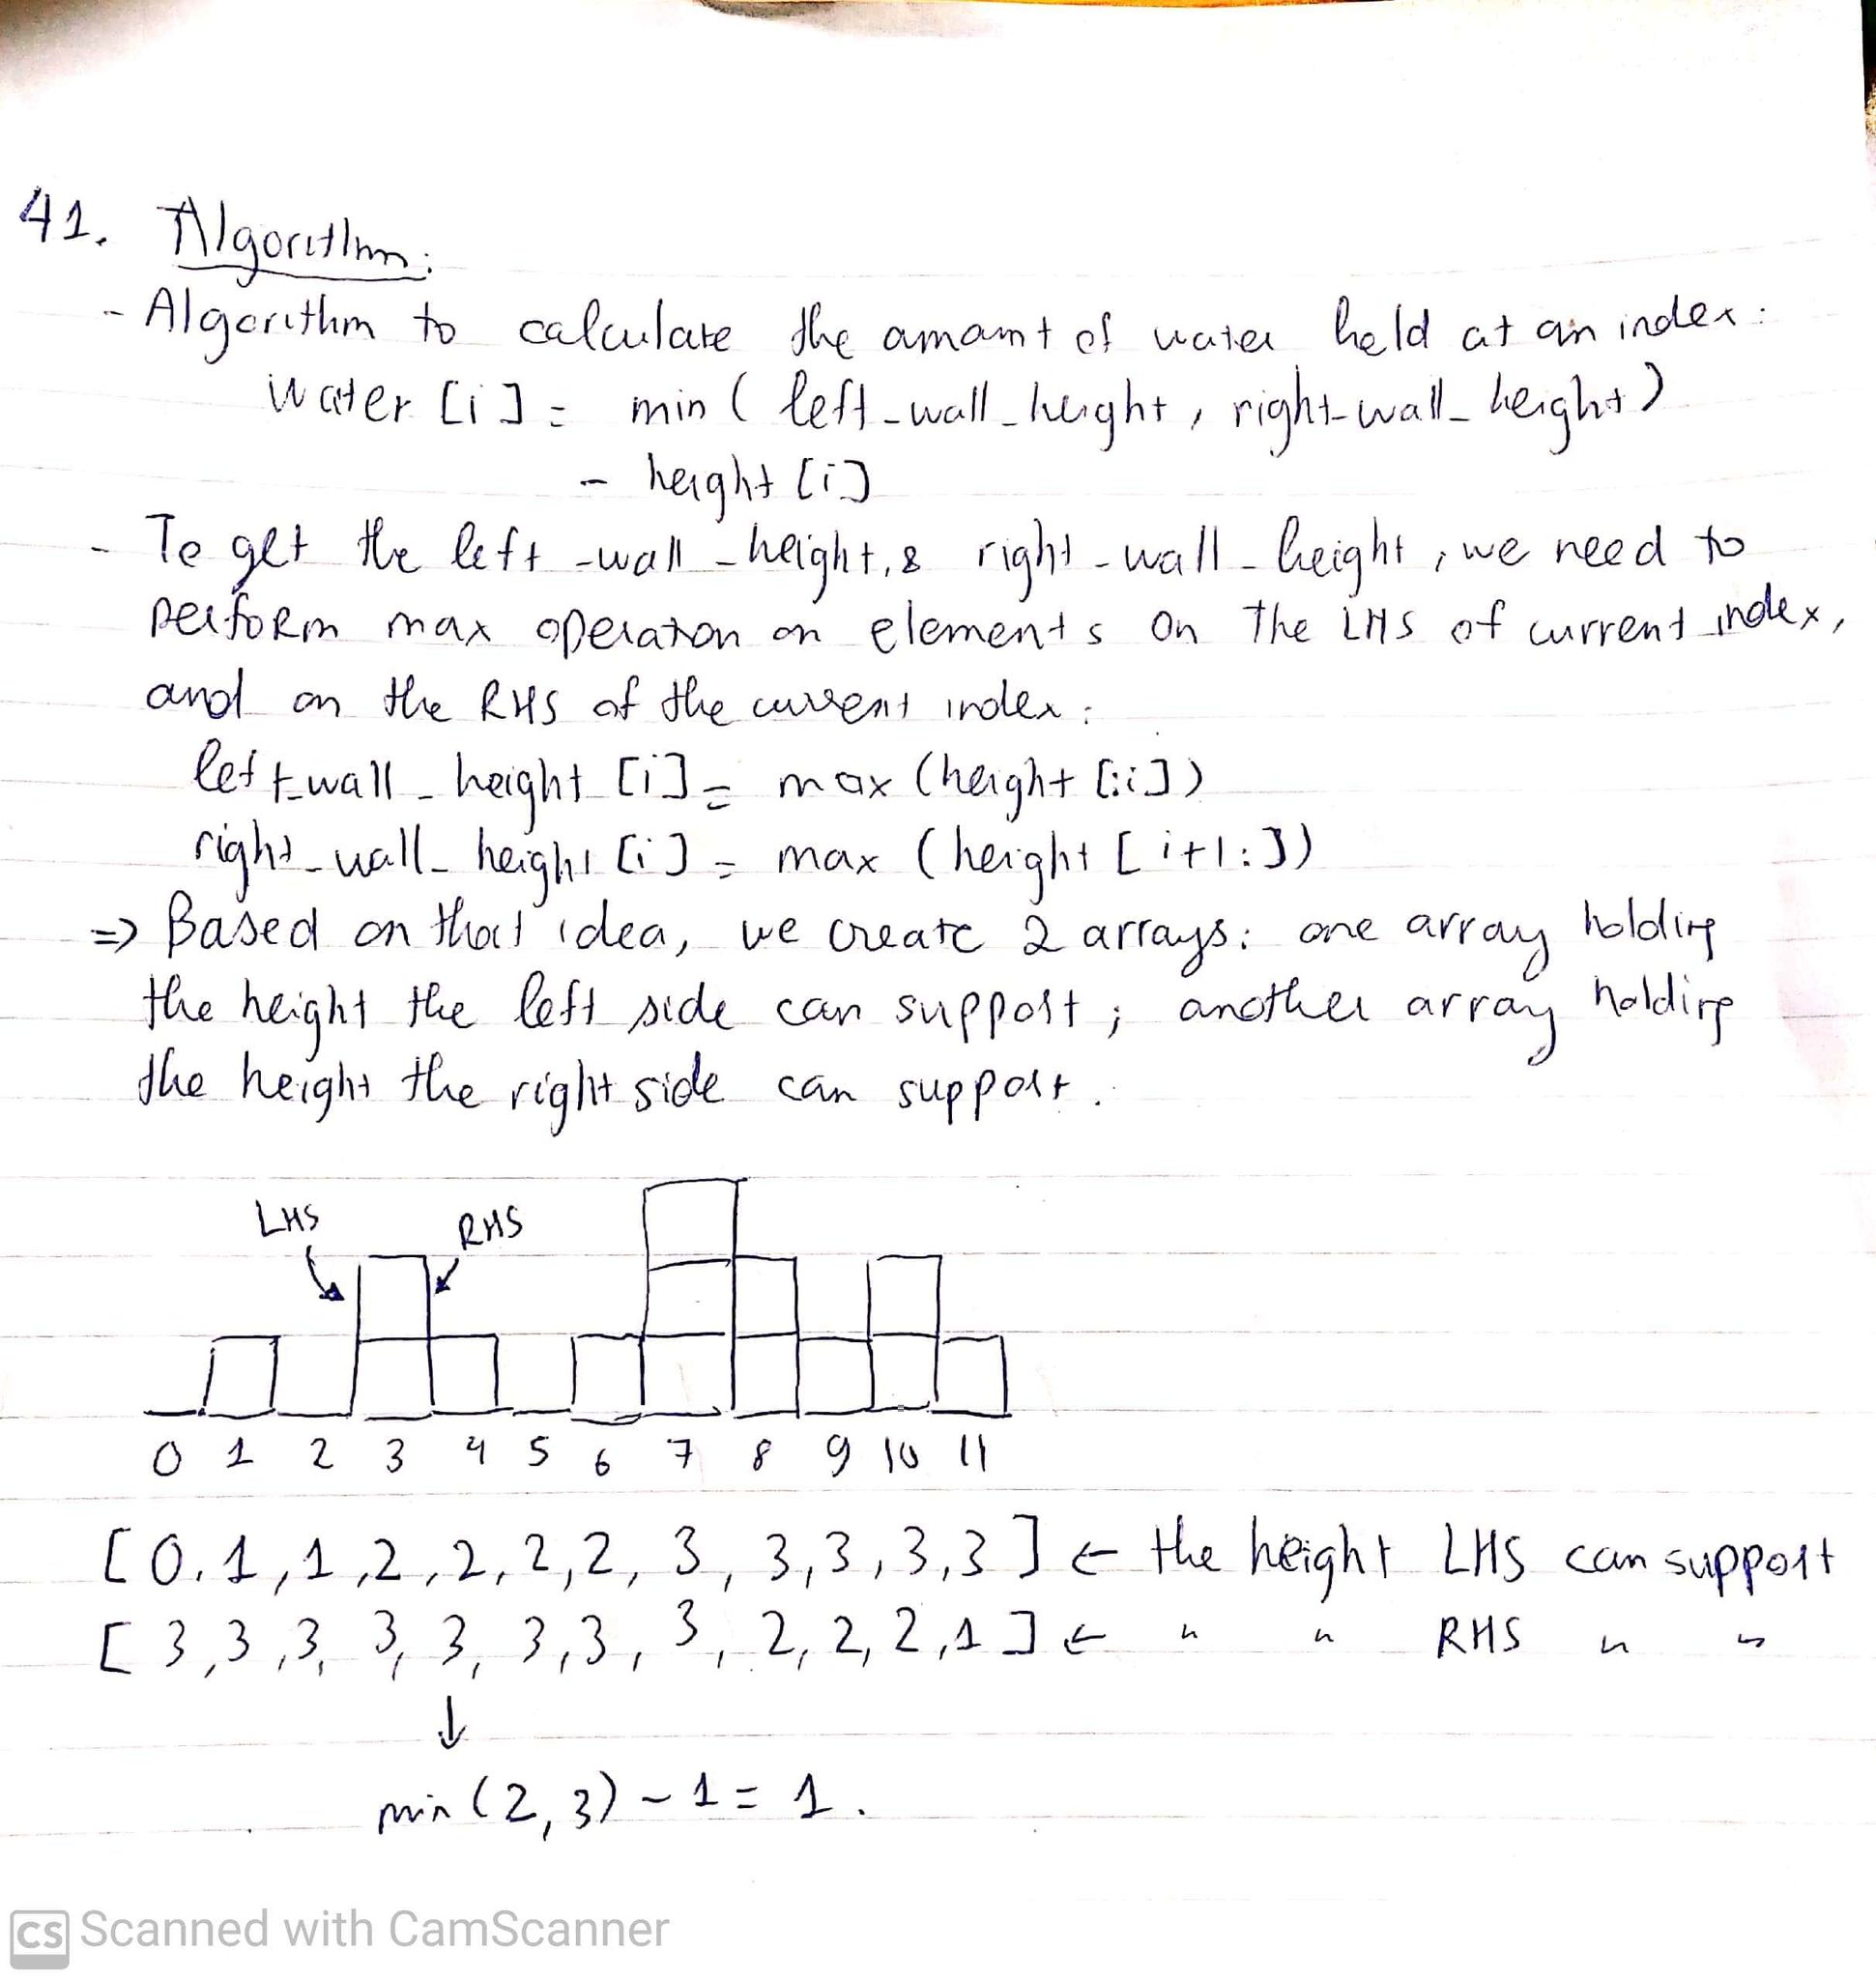 41. Algorithm:
- Algorithm to calculate the amount of water held at an index:
water [i] = min ( left_wall_height, right_wall_height)
- height [i]
- To get the left_wall_height, & right_wall_height, we need to
perform max operation on elements on the LHS of current index,
and on the RHS of the current index:
left_wall_height [i] = max (height [:i])
right_wall_height [i] = max (height [i+1:])
=> Based on that idea, we create 2 arrays: one array holding
the height the left side can support; another array holding
the height the right side can support.
LHS RHS
0 1 2 3 4 5 6 7 8 9 10 11
[0, 1, 1, 2, 2, 2, 2, 3, 3, 3, 3, 3] ← the height LHS can support
[3, 3, 3, 3, 3, 3, 3, 3, 2, 2, 2, 1] ← " " RHS " "
↓
min (2, 3) - 1 = 1.
CS Scanned with CamScanner